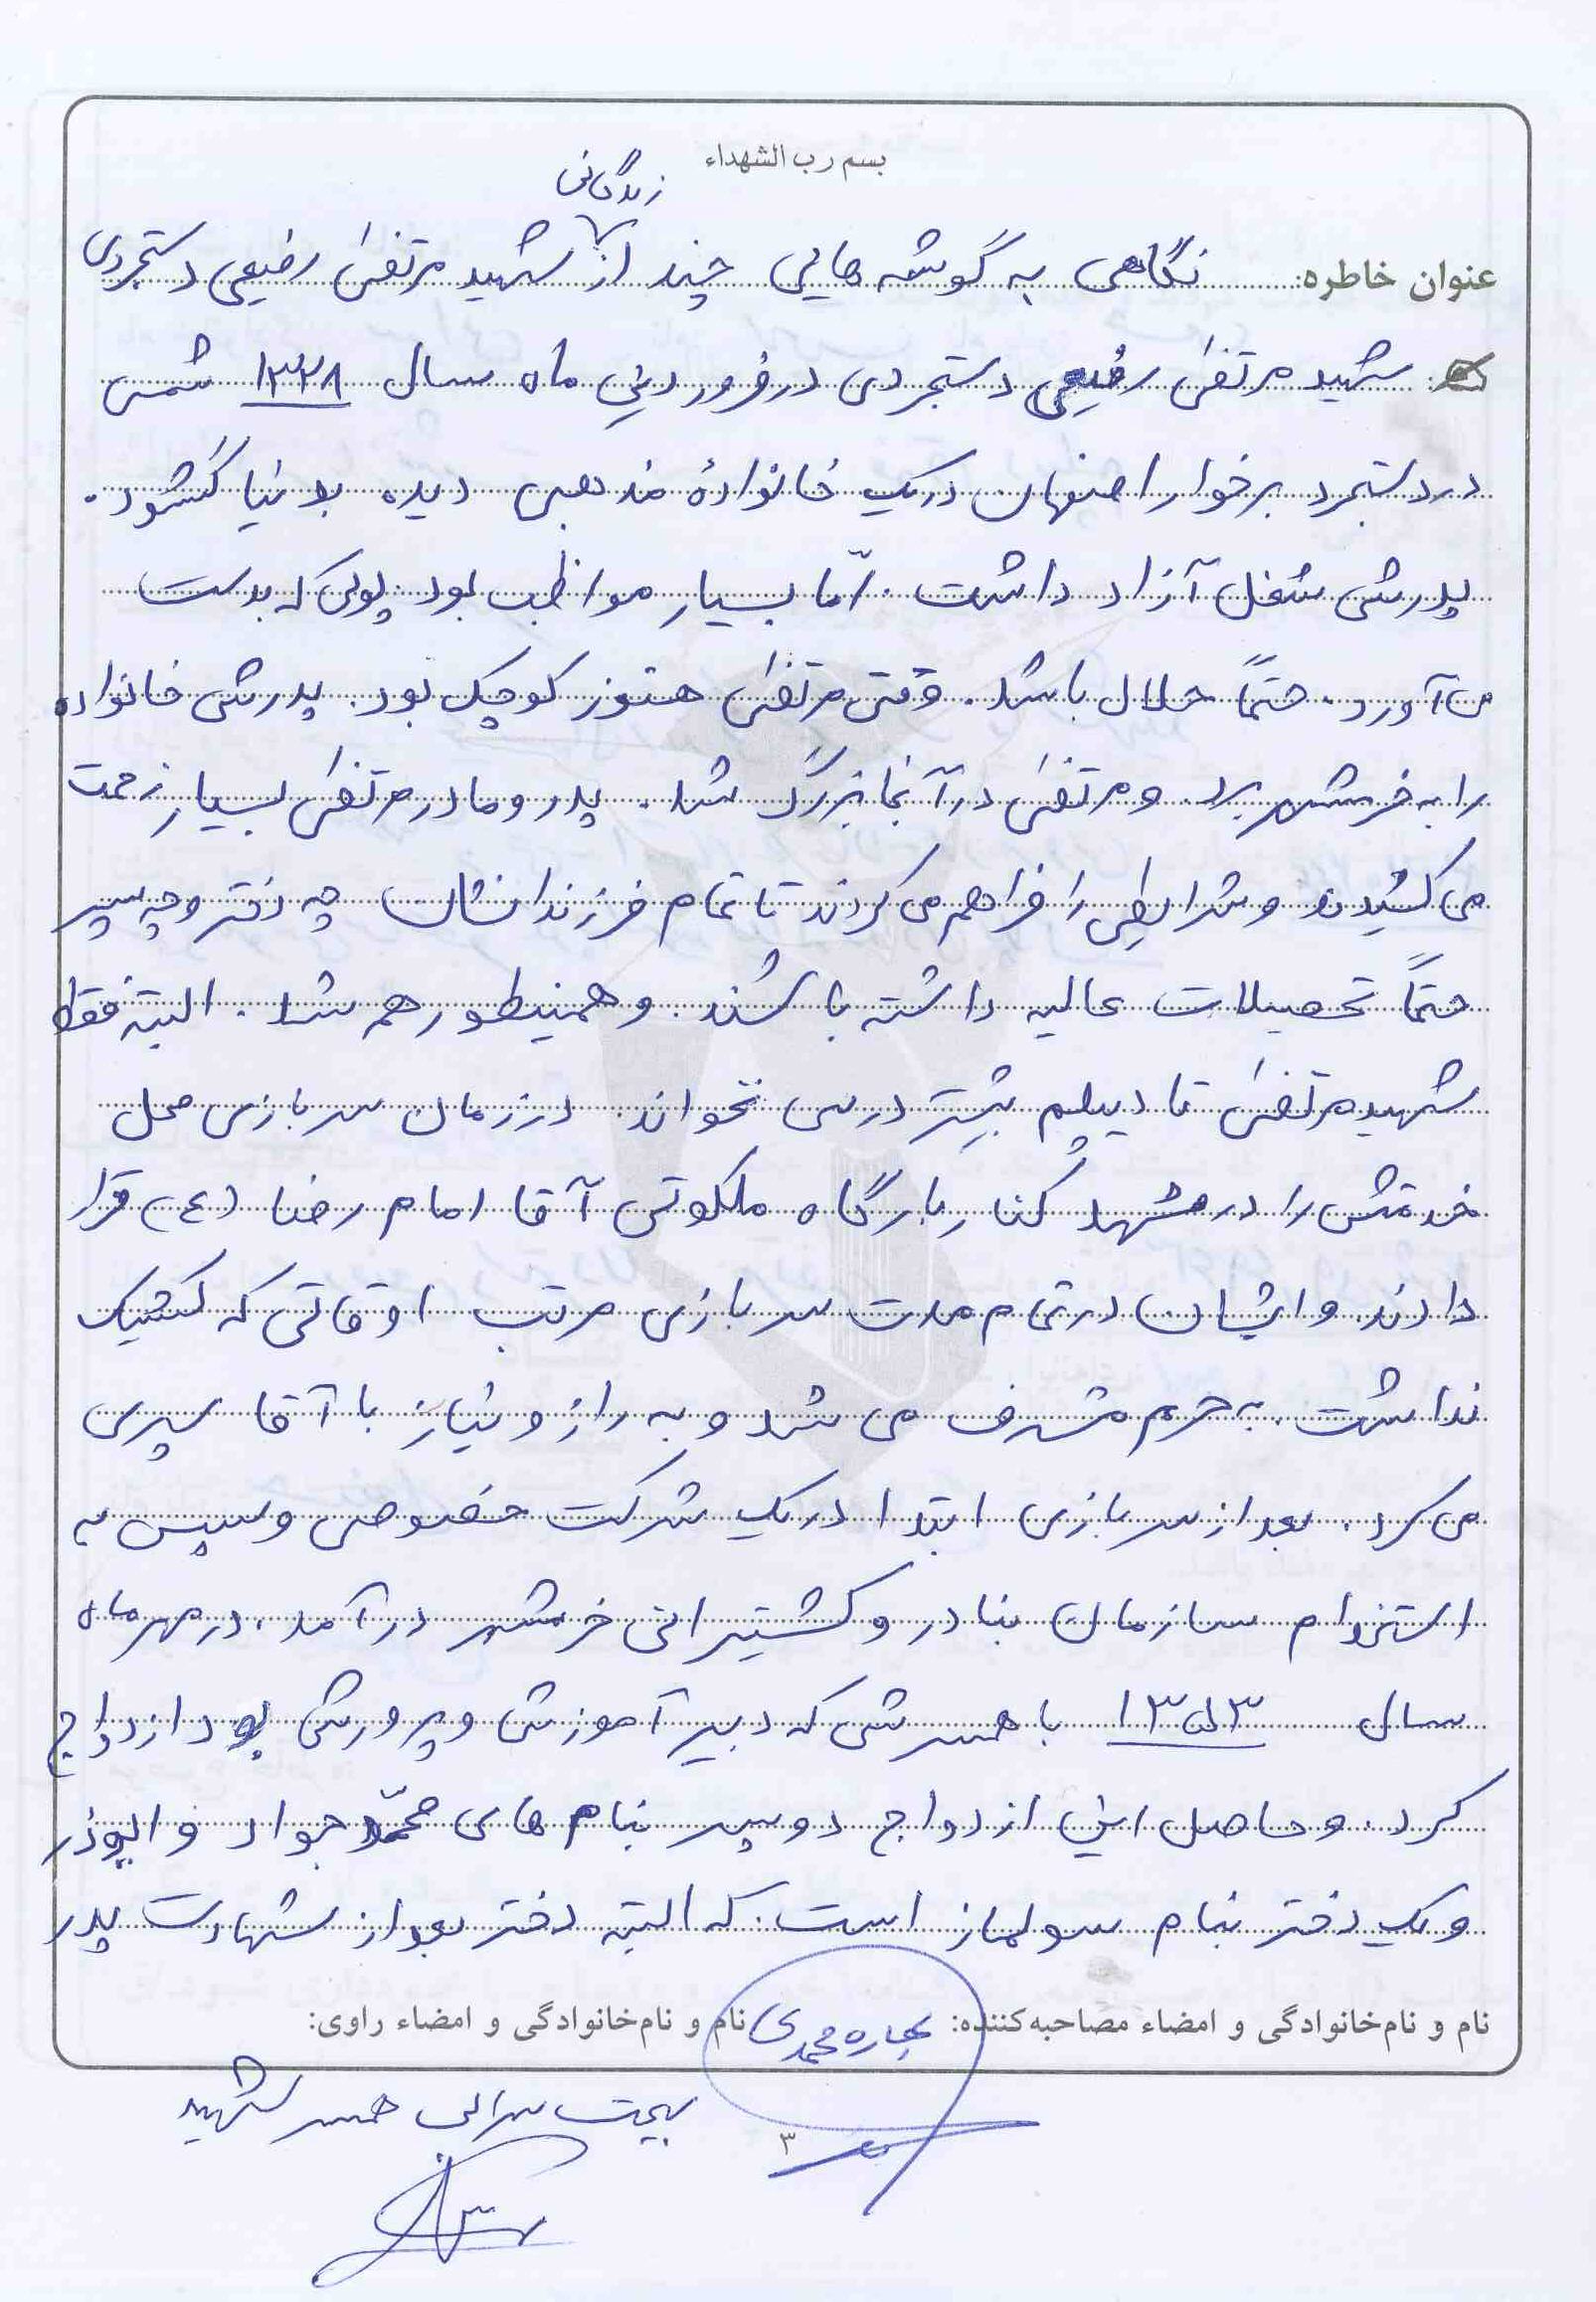 بسم رب الشهداء
زندگانی
عنوان خاطره: نگاهی به گوشه هایی چند از شهید مرتضی رفیعی دستجردی
شهید مرتضی رفیعی دستجردی در فروردین ماه سال ۱۳۲۸ شمسی
در دستجرد برخوار اصفهان در یک خانوادهٔ مذهبی دیده بدنیا گشود.
پدرش شغل آزاد داشت. امّا بسیار مواظب بود پولی که بدست
می آورد. حتماً حلال باشد. وقتی مرتضی هنوز کوچک بود. پدرش خانواده
را به خرمشهر برد. و مرتضی در آنجا بزرگ شد. پدر و مادر مرتضی بسیار زحمت
می کشیدند و شرایطی را فراهم می کردند تا تمام فرزندانشان چه دختر و چه پسر
حتماً تحصیلات عالیه داشته باشند. و همینطور هم شد. البته فقط
شهید مرتضی تا دیپلم بیشتر درس نخواند. در زمان سربازی محل
خدمتش را در مشهد کنار بارگاه ملکوتی آقا امام رضا (ع) قرار
دادند. و ایشان در تمام مدت سربازی مرتب اوقاتی که کشیک
نداشت. به حرم مشرف می شد و به راز و نیاز با آقا سپری
می کرد. بعد از سربازی ابتدا در یک شرکت خصوصی و سپس به
استخدام سازمان بنادر و کشتیرانی خرمشهر درآمد. در مهر ماه
سال ۱۳۵۳ با همسرش که دبیر آموزش و پرورش بود ازدواج
کرد. و حاصل این ازدواج دو پسر بنام های محمّد جواد و ابوذر
و یک دختر بنام سولماز است. که البته دختر بعد از شهادت پدر
نام و نام‌خانوادگی و امضاء مصاحبه‌کننده: محمدی نام و نام‌خانوادگی و امضاء راوی:
بهجت همسر شهید
۳